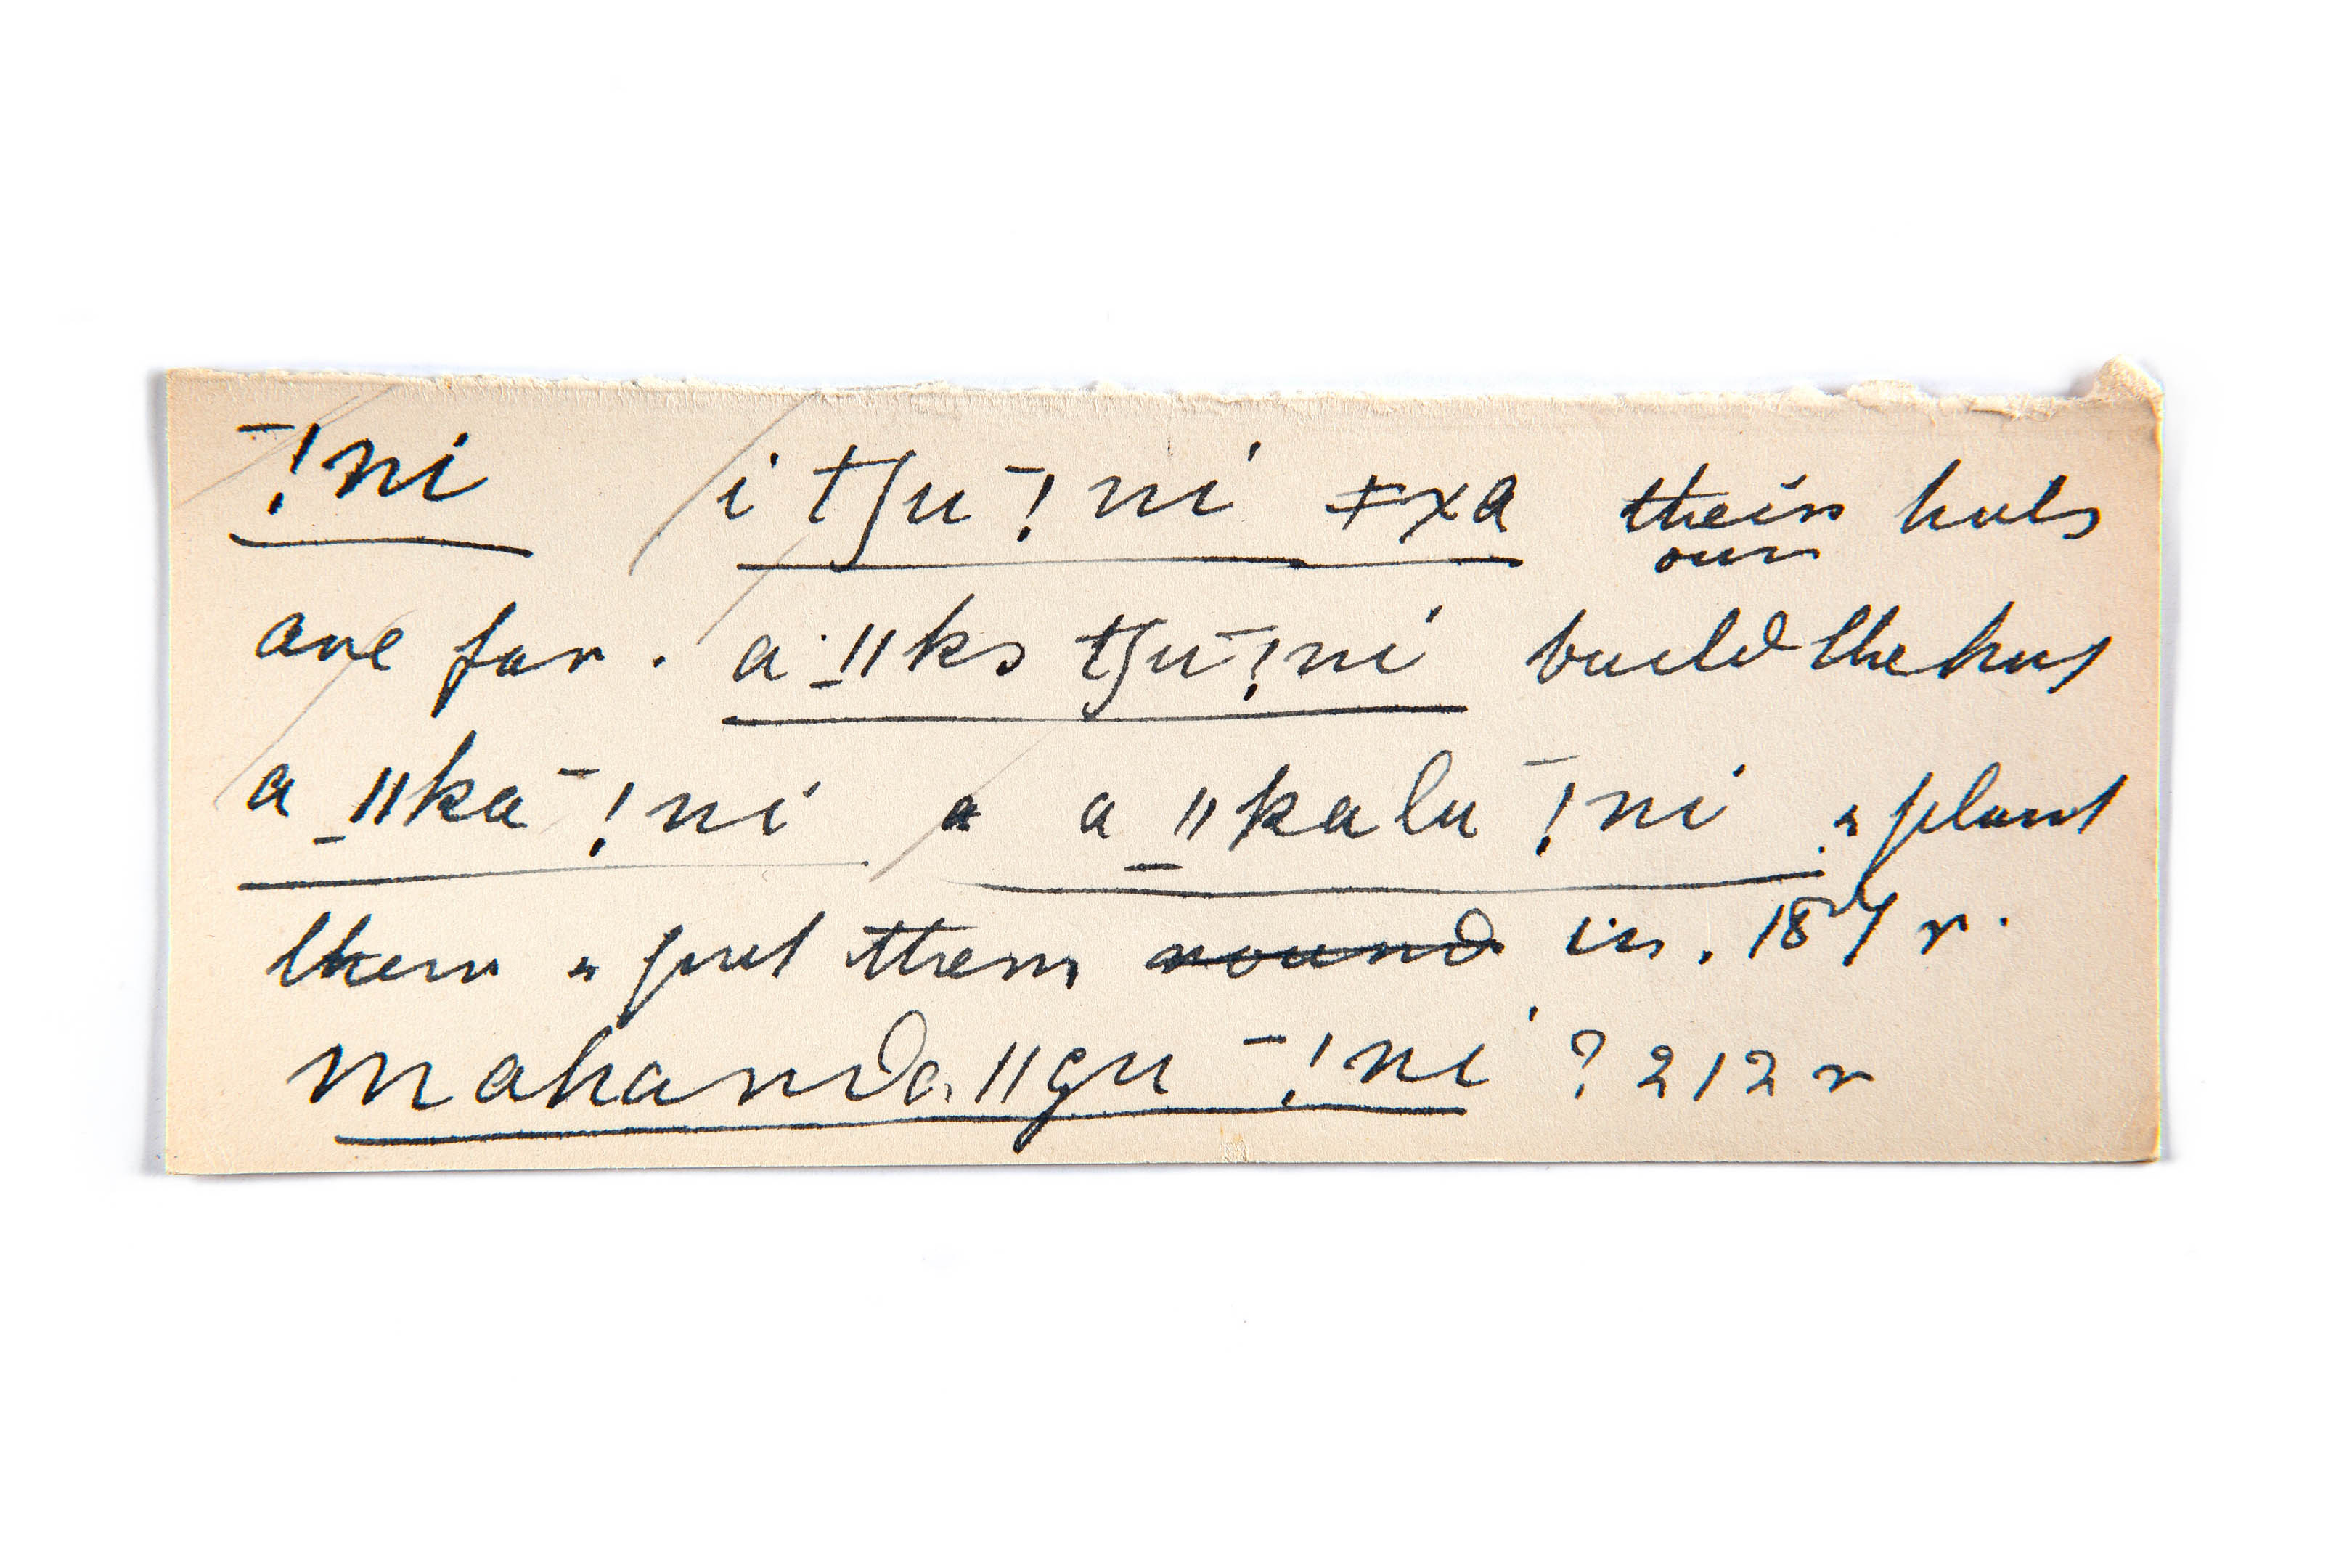 ¯!ni i tʃu ¯!ni ǂxa their huts
our
are far. a _ǁks tʃu ¯!ni build the hut
a _ǁka ¯!ni a a _ǁkalu ¯!ni & plant
them & put them round in. 187 r.
mahanda ǁgu ¯!ni ? 212 r